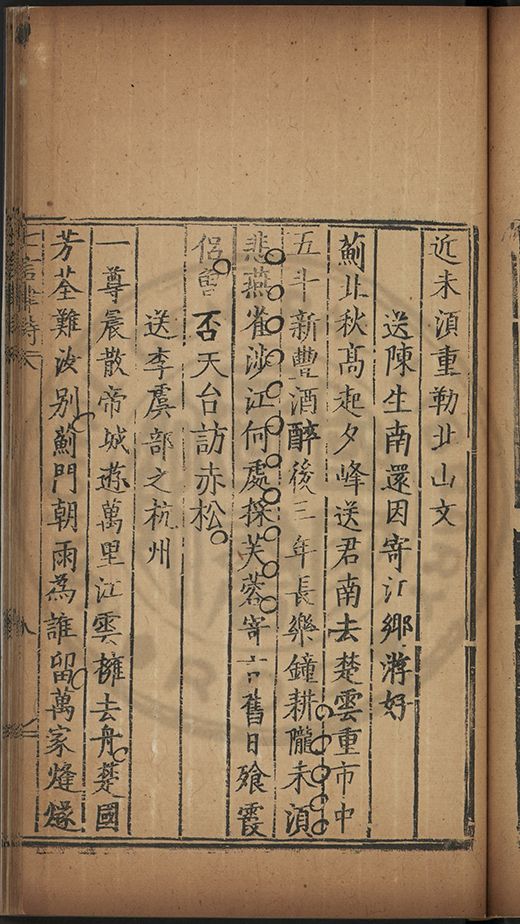 近未須重勒北山文
送陳生南還因寄江鄉游好
薊北秋高起夕峰送君南去楚雲重市中
五斗新豐酒醉後三年長樂鐘耕隴未須
悲燕雀涉江何處採芙蓉寄言舊日飱霞
侶曾否天台訪赤松
送李虞部之杭州
一尊晨散帝城遊萬里江雲擁去舟楚國
芳荃難汝別薊門朝雨為誰留萬家烽燧